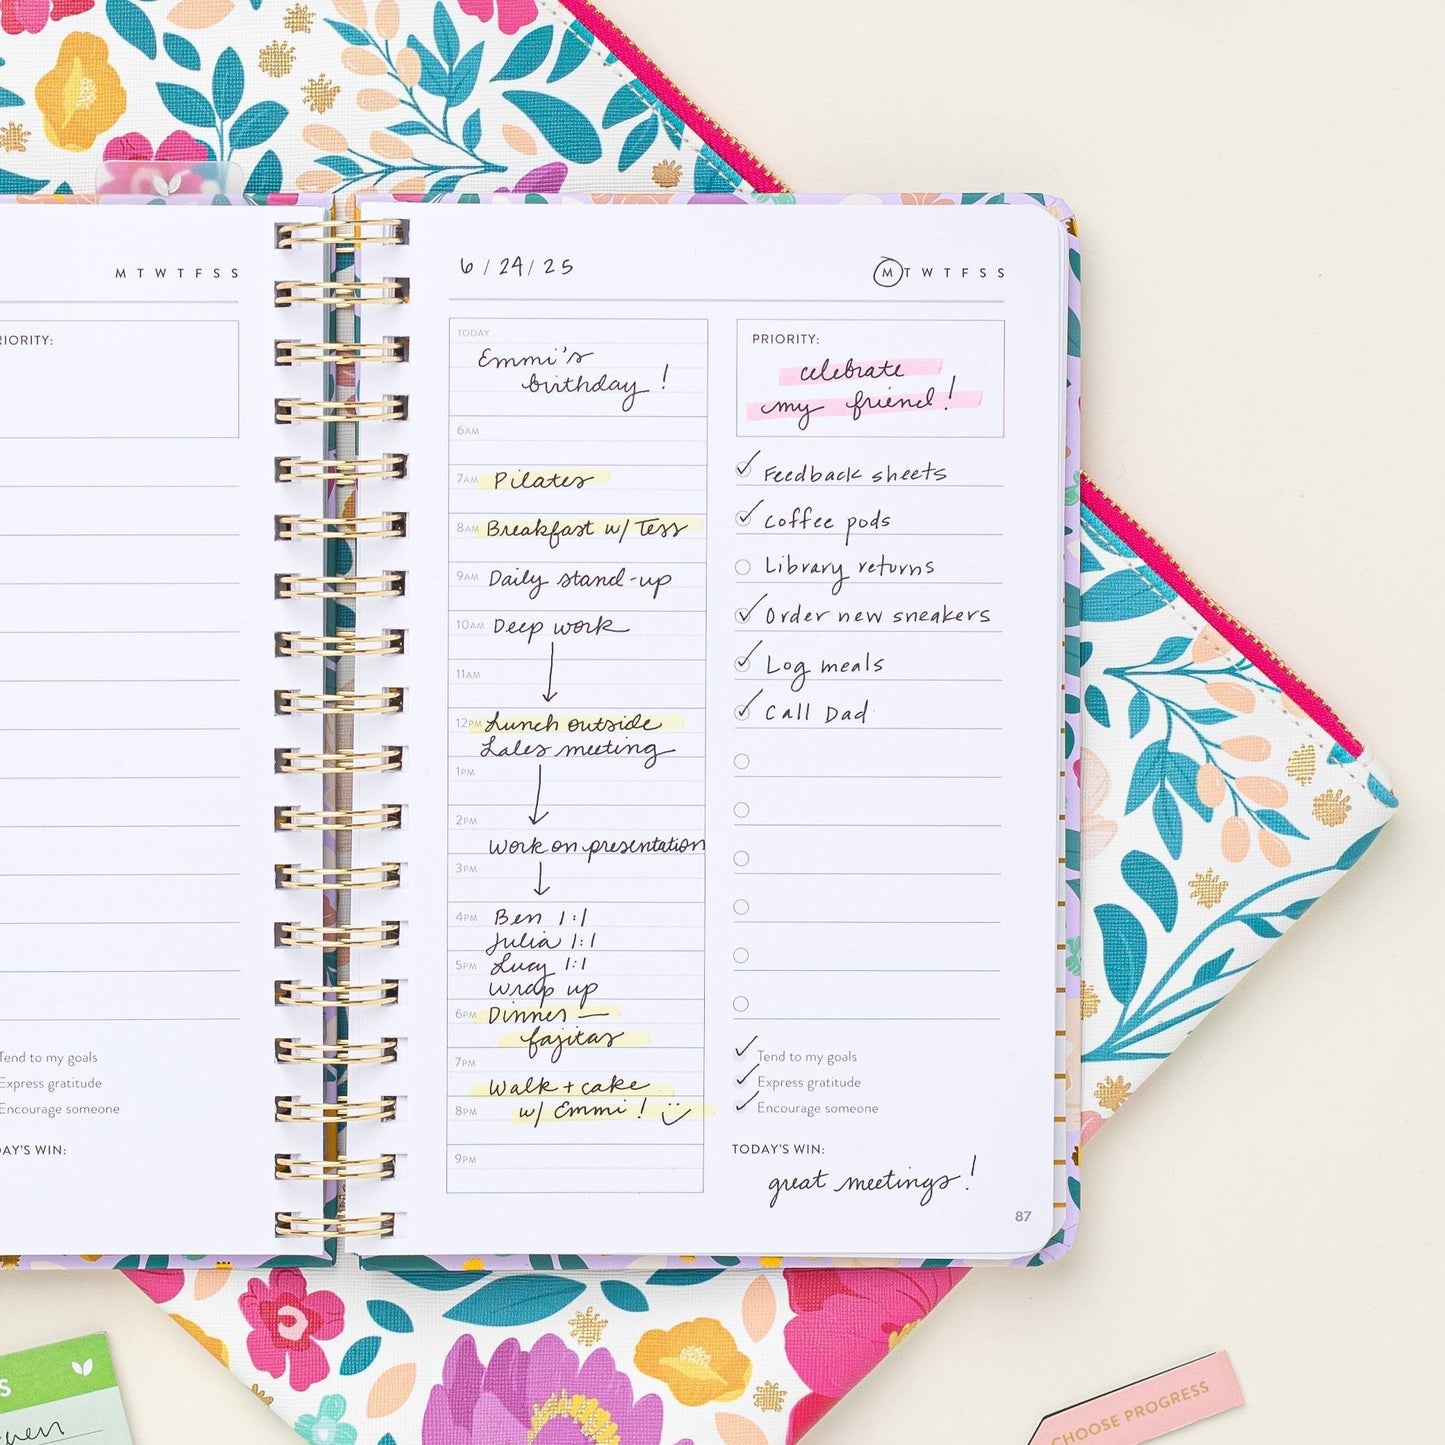 M T W T F S S
RIORITY:
Tend to my goals
Express gratitude
Encourage someone
AY'S WIN:
6/24/25
M T W T F S S
TODAY
Emmi's
birthday!
6AM
7AM Pilates
8AM Breakfast w/ Tess
9AM Daily stand-up
10AM Deep work
11AM
12PM Lunch outside
Sales meeting
1PM
2PM
Work on presentation
3PM
4PM Ben 1:1
Julia 1:1
5PM Lucy 1:1
wrap up
6PM Dinner —
fajitas
7PM
Walk + cake
8PM w/ Emmi!
9PM
PRIORITY:
celebrate
my friend!
Feedback sheets
Coffee pods
Library returns
Order new sneakers
Log meals
Call Dad
Tend to my goals
Express gratitude
Encourage someone
TODAY'S WIN:
great meetings!
87
S
CHOOSE PROGRESS